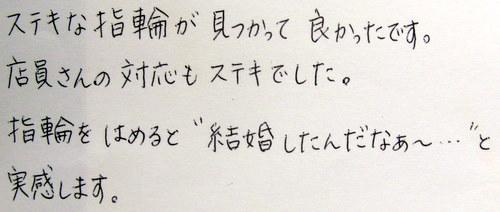 ステキな指輪が見つかって良かったです。
店員さんの対応もステキでした。
指輪をはめると〝結婚したんだなぁ〜…〟と
実感します。